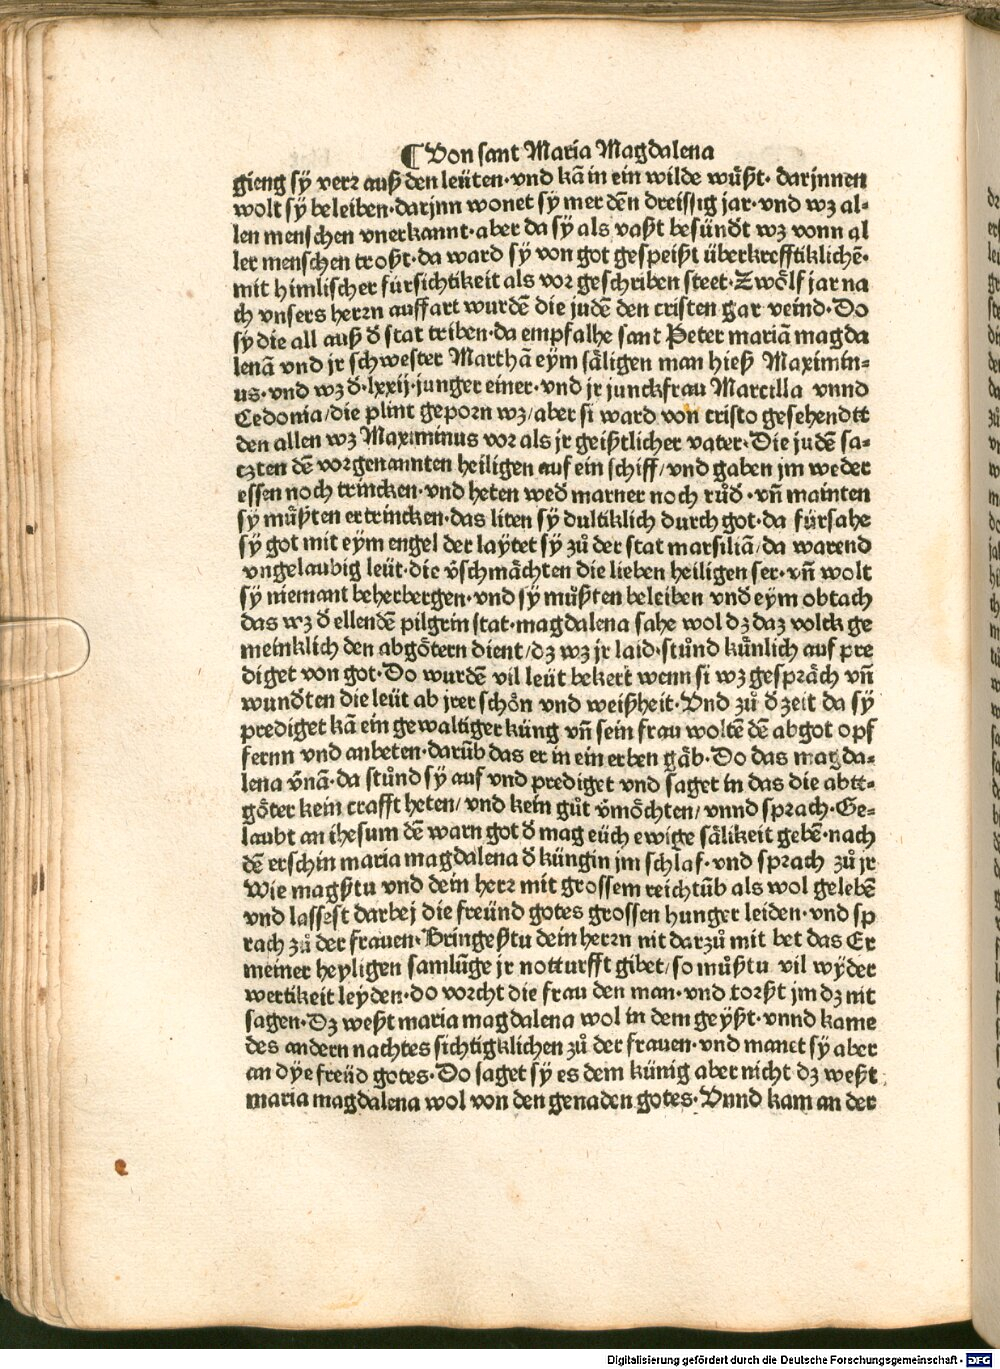 ¶ Von sant Maria Magdalena
gieng sÿ verr auß den leüten·vnd kā in ein wilde wuͤßt· darjnnen
wolt sÿ beleiben·darjnn wonet sÿ mer dēn dreissig jar·vnd wz al-
len menschen vnerkannt·aber da sÿ als vaßt besündt wz vonn al
ler menschen troßt·da ward sÿ von got gespeißt überkrefftiklichē·
mit himlischer fürsichtikeit als vor geschriben steet·Zwoͤlf jar na
ch vnsers herrn auffart wurdē die judē den cristen gar veind·Do
sÿ die all auß d̄ stat triben·da empfalhe sant Peter mariā magda
lenā vnd jr schwester Marthā eÿm saͤligen man hieß Maximin-
us·vnd wz d̄·lxxij·junger einer·vnd jr junckfrau Marcilla vnnd
Cedonia/die plint geporn wz/aber si ward von cristo gesehendtt
den allen wz Maximinus vor als jr geißtlicher vater·Die judē sa-
tzten dē vorgenannten heiligen auf ein schiff/vnd gaben jm weder
essen noch trincken·vnd heten wed̄ marner noch ruͦd̄·vn̄ mainten
sÿ muͤßten ertrincken·das liten sÿ dultiklich durch got·da fürsahe
sÿ got mit eÿm engel der laÿtet sÿ zuͦ der stat marsiliā/da warend
vngelaubig leüt·die v̄schmaͤchten die lieben heiligen ser·vn̄ wolt
sÿ niemant beherbergen·vnd sÿ muͤßten beleiben vnd̄ eÿm obtach
das wz d̄ ellendē pilgrin stat·magdalena sahe wol dz daz volck ge
meinklich den abgoͤtern dient/dz wz jr laid·stuͦnd kuͤnlich auf pre
diget von got·Do wurdē vil leüt bekert wenn si wz gespraͤch vn̄
wund̄ten die leüt ab jrer schoͤn vnd weißheit·Vnd zuͦ d̄ zeit da sÿ
prediget kā ein gewaltiger küng vn̄ sein frau woltē dē abgot opf
fernn vnd anbeten·darūb das er in ein erben gaͤb·Do das magda-
lena v̄nā·da stuͦnd sÿ auf vnd prediget vnd saget in das die abtt-
goͤter kein crafft heten/vnd kein guͦt v̄moͤchten/vnnd sprach·Ge-
laubt an ihesum dē warn got d̄ mag eüch ewige saͤlikeit gebē·nach
dē erschin maria magdalena d̄ küngin jm schlaf·vnd sprach zuͦ jr
Wie magßtu vnd dein herr mit grossem reichtūb als wol gelebē
vnd lassest darbej die freünd gotes grossen hunger leiden·vnd sp
rach zuͦ der frauen·Bringeßtu dein herrn nit darzuͦ mit bet das Er
meiner heyligen samlūge jr notturfft gibet/so muͤßtu vil wÿder
wertikeit leyden·do vorcht die frau den man·vnd torßt jm dz nit
sagen·Dz weßt maria magdalena wol in dem geÿßt·vnnd kame
des andern nachtes sichtigklichen zuͦ der frauen·vnd manet sÿ aber
an dÿe freüd gotes·Do saget sÿ es dem künig aber nicht dz weßt
maria magdalena wol von den genaden gotes·Vnnd kam an der
Digitalisierung gefördert durch die Deutsche Forschungsgemeinschaft - DFG